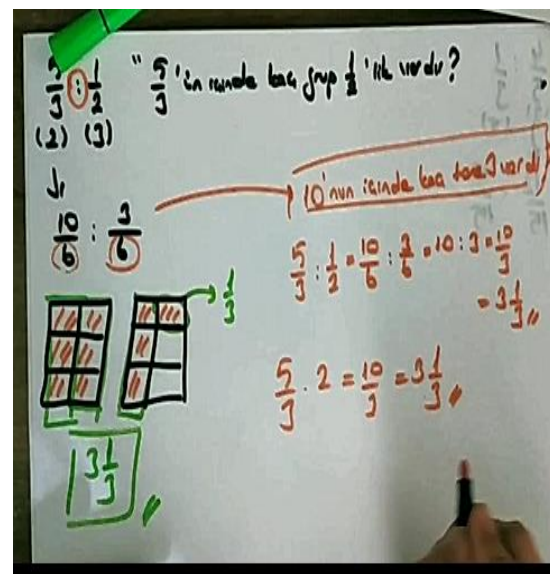 5/3 : 1/2 " 5/3 'in içinde kaç grup 1/2 'lik vardır?
(2) (3)
10/6 : 3/6
10'nun içinde kaç tane 3 vardır
5/3 : 1/2 = 10/6 : 3/6 = 10 : 3 = 10/3
= 3 1/3
1/3
5/3 . 2 = 10/3 = 3 1/3
3 1/3